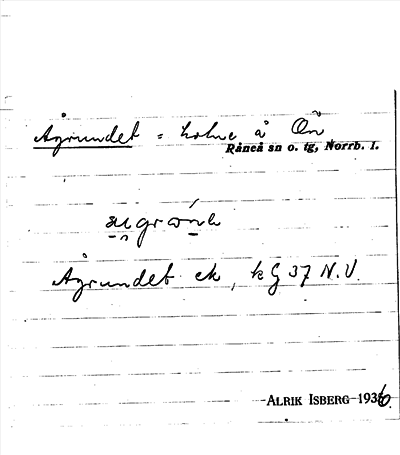 Ågrundet = holme å Ön
Råneå sn o. tg, Norrb. l.
Ågrundet ek, kG 37 N.V.
ALRIK ISBERG 1936